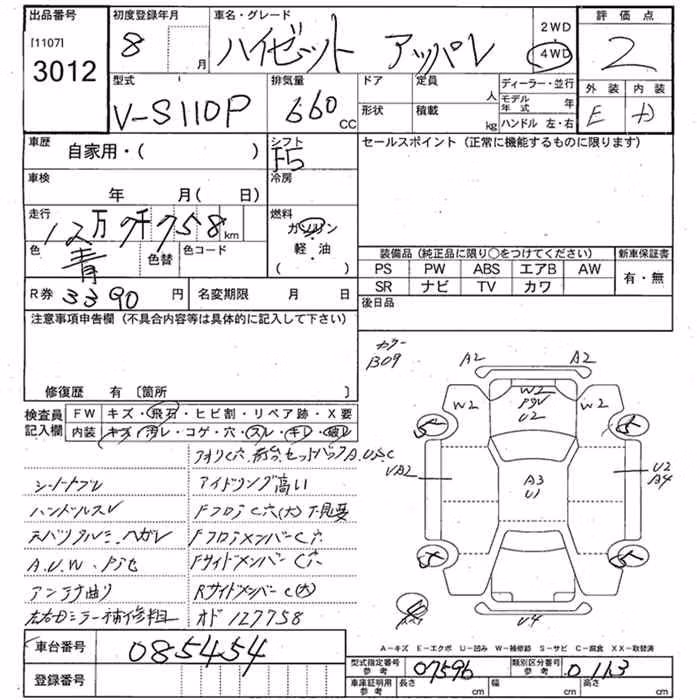 出品番号
[1107]
3012
初度登録年月
8 月
車名・グレード
ハイゼット アッパレ
2WD
4WD
評価点
2
型式
V-S110P
排気量
660 CC
ドア
形状
定員
人
積載
kg
ディーラー・並行
モデル年式 年
ハンドル 左・右
外装
内装
E D
車歴
自家用・( )
シフト
F5
セールスポイント (正常に機能するものに限ります)
車検
年 月( 日)
冷房
走行
12万7千758 km
燃料
ガソリン
・
軽・油
( )
色
青
色替
色コード
装備品 (純正品に限り○をつけてください)
新車保証書
PS PW ABS エアB AW
SR ナビ TV カワ
有・無
R券 3390 円
名変期限 月 日
後日品
注意事項申告欄 (不具合内容等は具体的に記入して下さい)
修復歴 有 〔箇所 〕
カラー
B09
検査員記入欄
FW キズ・飛石・ヒビ割・リペア跡・X要
内装 キズ・汚レ・コゲ・穴・スレ・キレ・破レ
シートブレ
アイドリング高い
ハンドルスレ
FフロアC穴(大)下見要
FフロアメンバーC穴
A.U.W.
FサイドメンバーC穴
アンテナ曲り
RサイドメンバーC(大)
左右Dミラー補修粗
オド 127758
A2 A2
W2 W2 W2
U2
UA2
A3
U1
U2
A4
U4
A−キズ E−エクボ U−凹み W−補修跡 S−サビ C−腐食 XX−取替済
車台番号
085454
登録番号
型式指定番号
参考
07596
類別区分番号
参考
0113
車庫証明用
参考
長さ cm
幅 cm
高さ cm